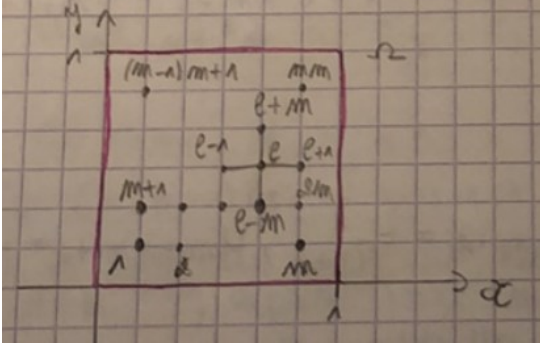 y
1
Ω
(m-1)m+1
mm
l+m
l-1
l
l+1
m+1
2m
l-m
1
2
m
x
1